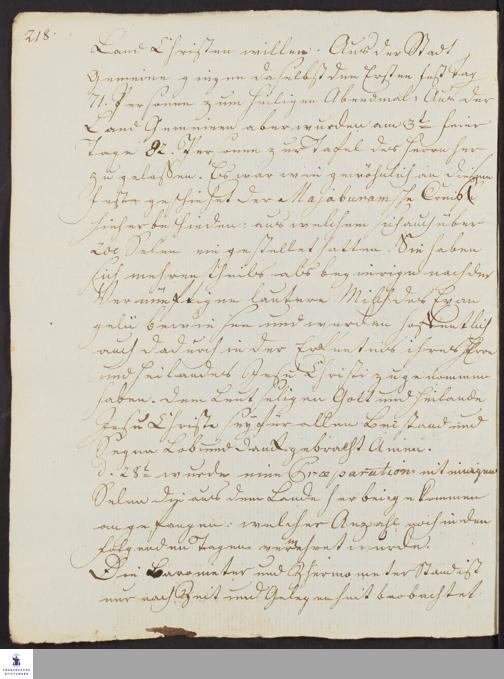 218.
Land Christen willen. Aus der Stadt
Gemeine gingen daselbst den Ersten fest Tag
71. Personen zum heiligen Abendmal: Aus der
Land Gemeinen aber wurden am 3t. feier
Tage 82. Personen zur Tafel des Herrn her
zu gelassen. Es war wie gewöhnlich an diesem
Feste geschiehet der Majaburamsche
hieher beschieden: aus welchem sich auch über
200 Selen eingestellet hatten. Sie haben
sich mehren theils als begierige nach der
Vernünftigen lautere Milch des Evan
gelii bewiesen und werden hoffentlich
auch dadurch in der Erkentnis ihres
und Heilandes Jesu Christi zugenommen
haben. Dem Leutseligen Gott und Heilande
Jesu Christo sey für allen Beistand und
Segen Lob und Danck gebracht Amen.
d. 28t. wurde eine Præparation mit einigen
Selen die aus dem Lande herbeygekommen
angefangen: welcher Anzahl noch in den
folgenden Tagen vermehret wurde.
Die Barometer und Thermometer Stand ist
nur nach Zeit und Gelegenheit beobachtet
FRANCKESCHE
STIFTUNGEN